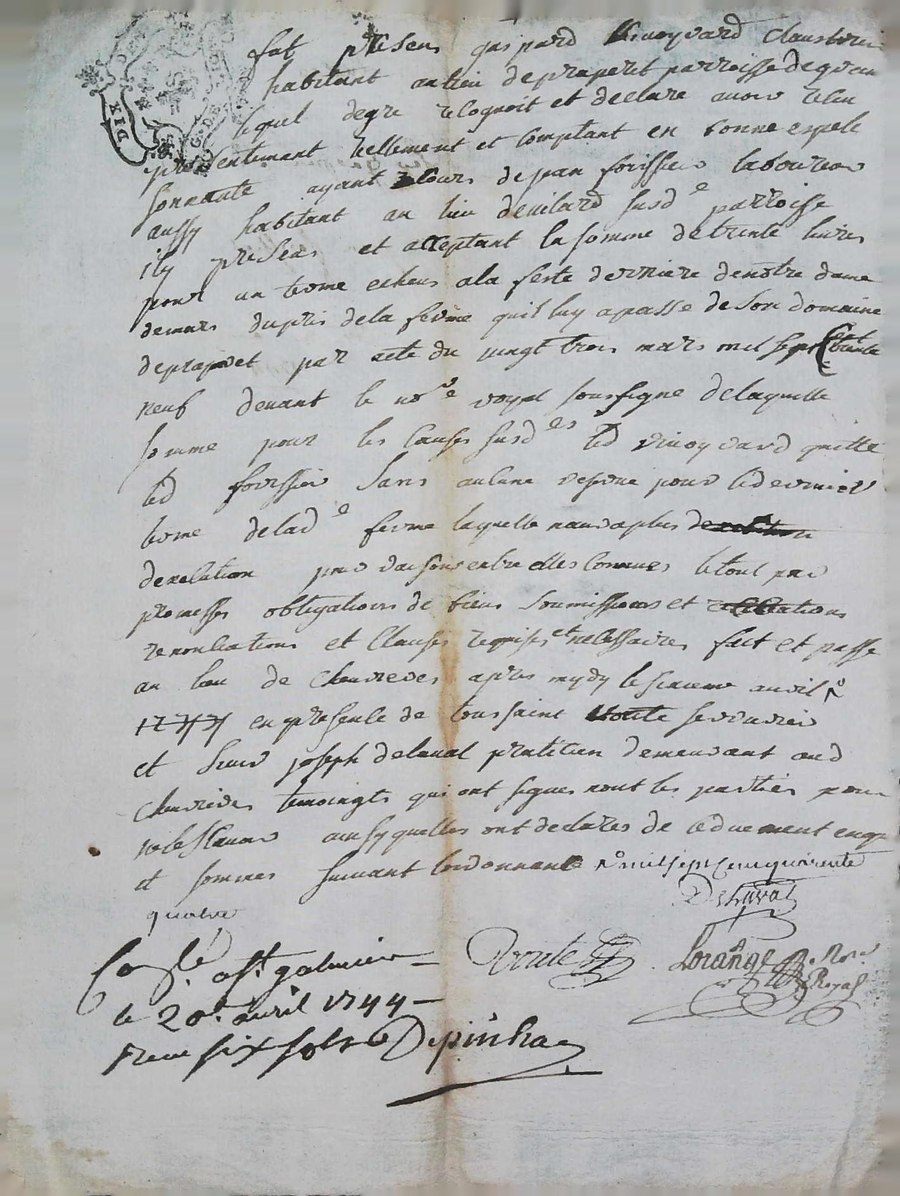 DIX
fut presens gaspard vinoyvard
habitant au lieu de praperet parroisse de
lequel de gre reconoit et declare avoir receu
presentemant reellement et comptant en bonne espece
sonnante ayant cours de jean forissier laboureur
aussy habitant au lieu susd^e parroisse
icy presens et acceptant la somme de trente livres
pour un terme echeus a la feste derniere de notre dame
de mars du pris de la ferme quil luy a passe de son domaine
de praperet par acte du vingt trois mars mil sept cent trente
neuf devant le no^re royal soussigne de laquelle
somme pour les causes susd^es led vinoyvard quitte
led forissier sans aucune reserve pour le dernier
terme de lad^e ferme laquelle naura plus
de relation pour raisons entre elles connues le tout par
promesses obligations de biens soumissions et
renonciations et clauses requises et necessaires fait et passe
au lieu de chevrieres apres mydy le avril
en presence de toussaint voute serrurier
et sieur joseph delaval praticien demeurant aud
chevrieres temoingts qui ont signes nont les parties pour
ne le scavoir ainsy quelles ont declares de ce duement enqu
et sommes suivant lordonnance mil sept cent quarente
Delaval
quatre
Con^lé a S^t galmier
le 20^e avril 1744
receu six sols
Voute
Lorange No^re
Royal